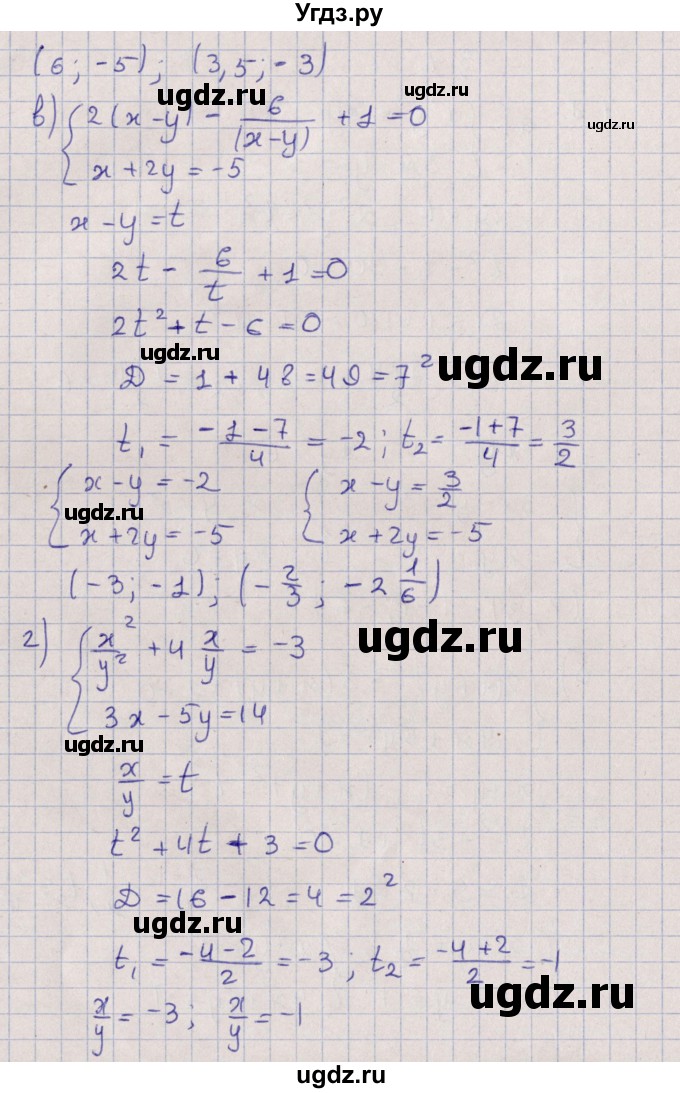 Угдз.ру
(6; -5); (3,5; -3)
ugdz.ru
ugdz.ru
ugdz.ru
в) { 2(x-y) - 6/(x-y) + 1 = 0
x + 2y = -5
x - y = t
2t - 6/t + 1 = 0
2t² + t - 6 = 0
ugdz.ru
ugdz.ru
Д = 1 + 48 = 49 = 7²
t₁ = (-1-7)/4 = -2; t₂ = (-1+7)/4 = 3/2
{ x - y = -2 { x - y = 3/2
ugdz.ru
x + 2y = -5 x + 2y = -5
(-3; -1); (-2/3; -2 1/6)
ugdz.ru
г) { x²/y² + 4 x/y = -3
3x - 5y = 14
ugdz.ru
x/y = t
t² + 4t + 3 = 0
Д = 16 - 12 = 4 = 2²
ugdz.ru
t₁ = (-4-2)/2 = -3; t₂ = (-4+2)/2 = -1
ugdz.ru
x/y = -3; x/y = -1
ugdz.ru